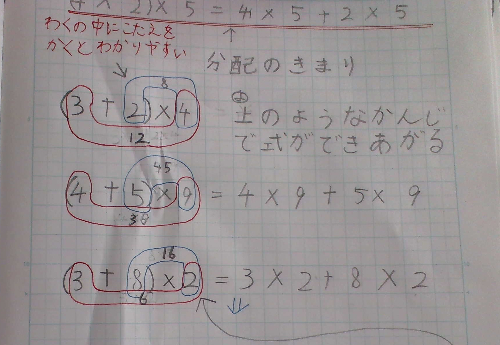 (4 × 2) × 5 = 4 × 5 + 2 × 5
わくの中にこたえを
かくとわかりやすい
分配のきまり
8
(3 + 2) × 4
12
上のようなかんじ
で式ができあがる
45
(4 + 5) × 9 = 4 × 9 + 5 × 9
36
16
(3 + 8) × 2 = 3 × 2 + 8 × 2
6